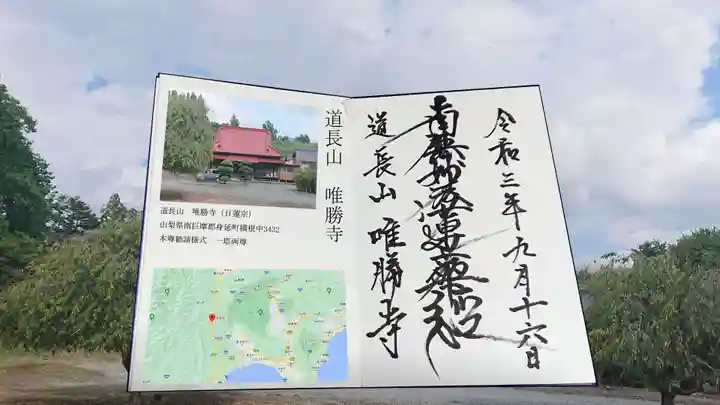 道長山　唯勝寺
道長山　唯勝寺（日蓮宗）
山梨県南巨摩郡身延町横根中3432
本尊勧請様式　一塔両尊
令和三年九月十六日
南無妙法蓮華経
道長山 唯勝寺